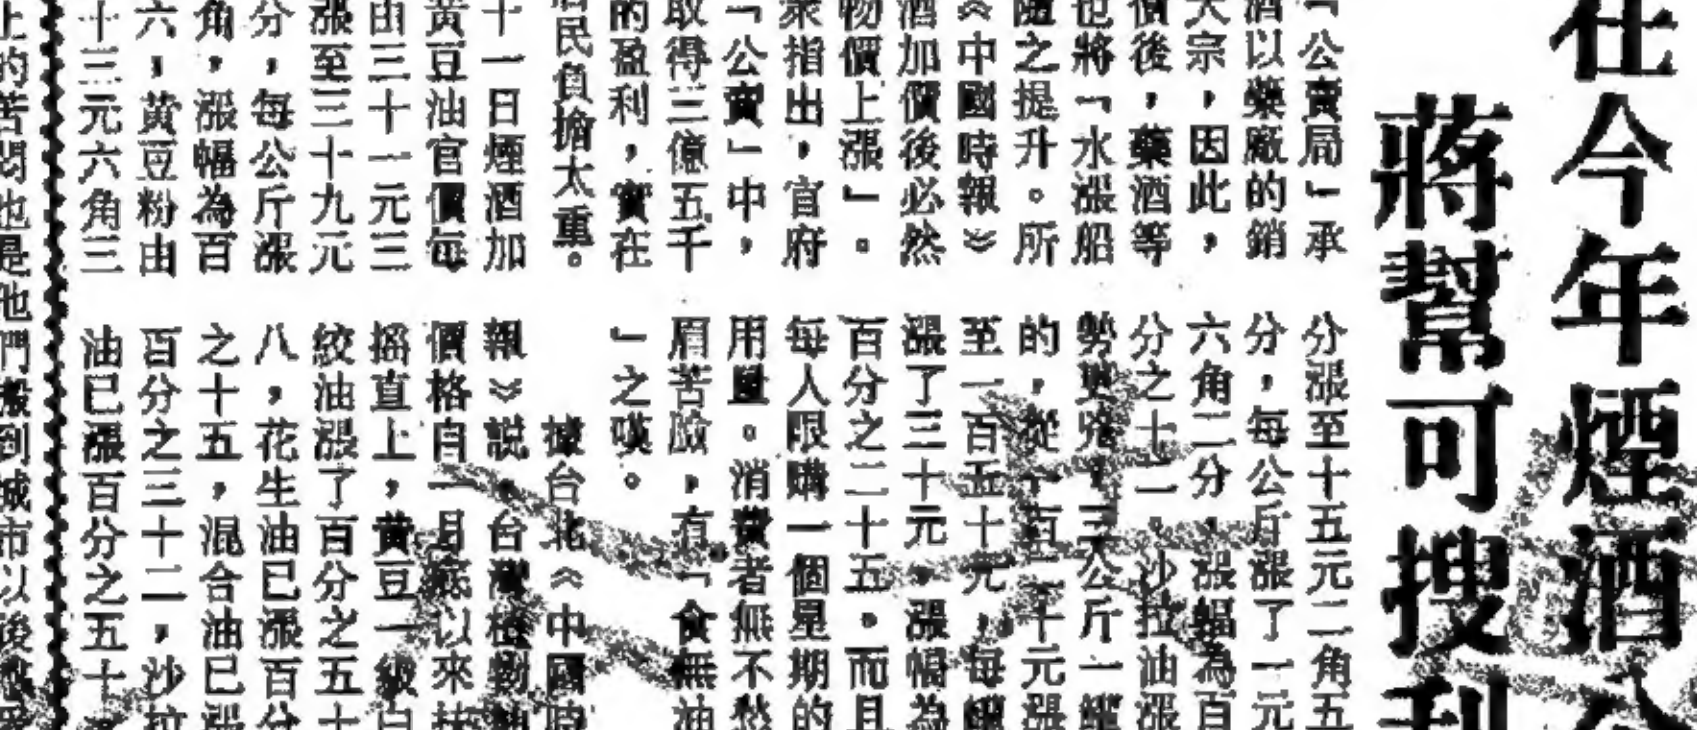 在今年煙酒公
蔣幫可搜刮
「公賣局」承
酒以藥廠的銷
大宗，因此，
價後，藥酒等
也將「水漲船
隨之提升。所
《中國時報》
酒加價後必然
物價上漲」。
衆指出，官府
「公賣」中，
取得三億五千
的盈利，實在
居民負擔太重。
十一日煙酒加
黃豆油官價每
由三十一元三
漲至三十九元
分，每公斤漲
角，漲幅為百
六，黃豆粉由
十三元六角三
分漲至十五元二角五
分，每公斤漲了一元
六角二分，漲幅為百
分之十二。沙拉油漲
勢更兇，三公斤一罐
的，從一百二十元漲
至一百五十元，每罐
漲了三十元，漲幅為
百分之二十五。而且
每人限購一個星期的
用量。消費者無不愁
眉苦臉，有「食無油
」之嘆。
據台北《中國時
報》説，台灣植物油
價格自一月底以來扶
搖直上，黃豆一級白
絞油漲了百分之五十
八，花生油已漲百分
之十五，混合油已漲
百分之三十二，沙拉
油已漲百分之五十
上的苦悶也是他們搬到城市以後